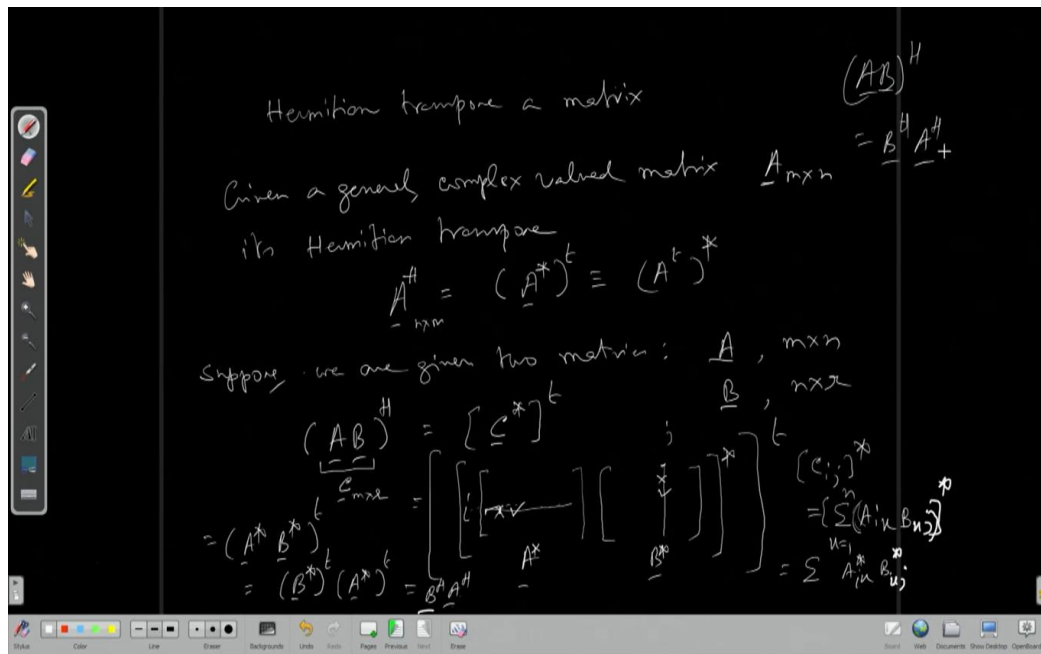 Hermition transpose a matrix
(AB)^H
= B^H A^H
Given a general, complex valued matrix A m×n
its Hermitian transpose
A^H n×m = (A*)^t ≡ (A^t)*
Suppose, we are given two matrices : A , m×n
B , n×r
(AB)^H = [C*]^t
C m×r = [ [ i [ ] [ j ] ]* ]^t
A* B*
[C_ij]*
= [Σ (A_ik B_kj)]*
k=1 n
= Σ A*_ik B*_kj
= (A* B*)^t
= (B*)^t (A*)^t = B^H A^H
Stylus
Color
Line
Eraser
Backgrounds
Undo
Redo
Pages
Previous
Next
Erase
Board
Web
Documents
Show Desktop
OpenBoard